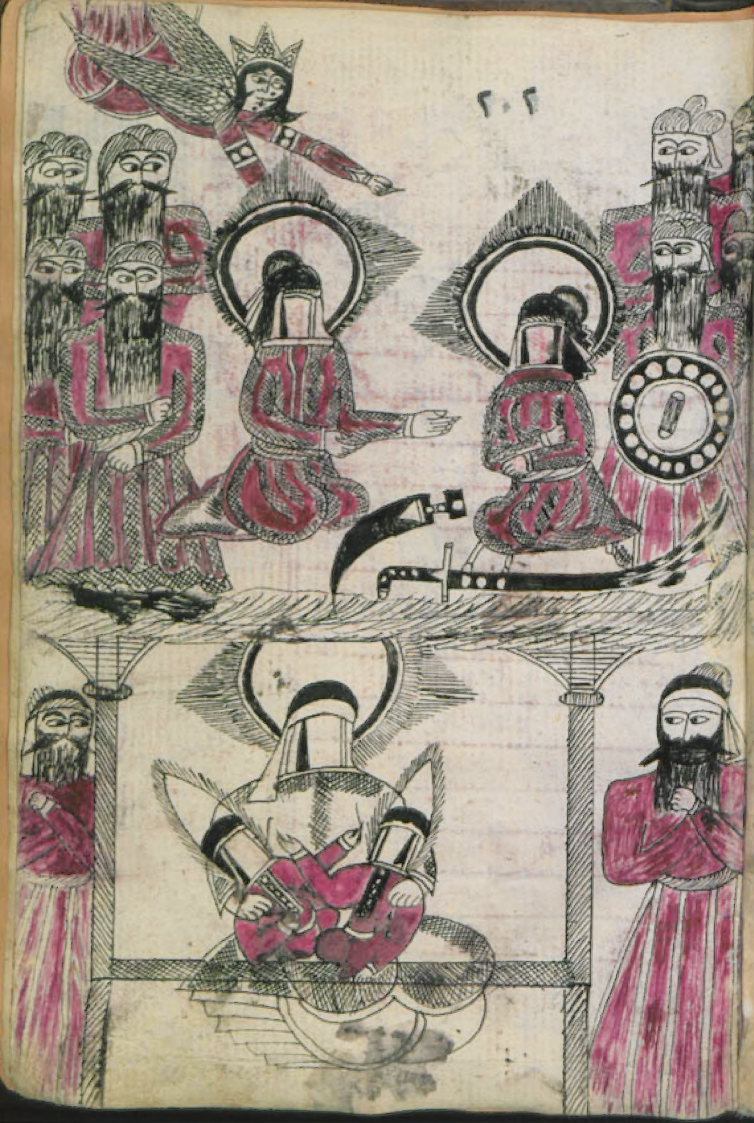 ۲۰۲